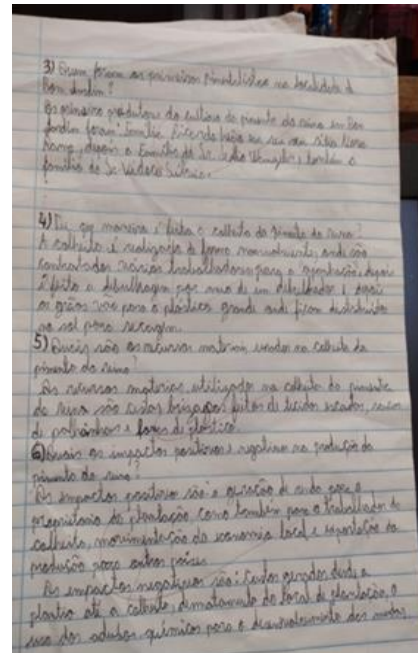 3) Quem foram os primeiros pimentalistas na localidade de
Bom Jardim?
Os primeiro produtores da cultura da pimenta do reino em Bom
Jardim foram família
depois a família do Sr. também a
família do Sr.
4) De que maneira é feita a colheita da pimenta do reino?
A colheita é realizada de forma manualmente, onde são
contratados vários trabalhadores para a apanhação, depois
é feito a debulhagem por meio de um debulhador e depois
os grãos vão para o plástico grande onde ficam distribuídos
no sol para secagem.
5) Quais são os recursos materiais usados na colheita da
pimenta do reino?
Os recursos materiais utilizados na colheita da pimenta
do reino são cestos feitos de tecidos sacos
de e de plástico.
6) Quais os impactos positivos e negativos na produção da
pimenta do reino?
Os impactos positivos são a geração de renda para o
proprietário da plantação, como também para o trabalhador da
colheita, movimentação da economia local e exportação da
produção para outros países.
Os impactos negativos são: Custos gerados desde a
plantio até a colheita, desmatamento do local de plantação, o
uso dos adubos químicos para o desenvolvimento das mudas,